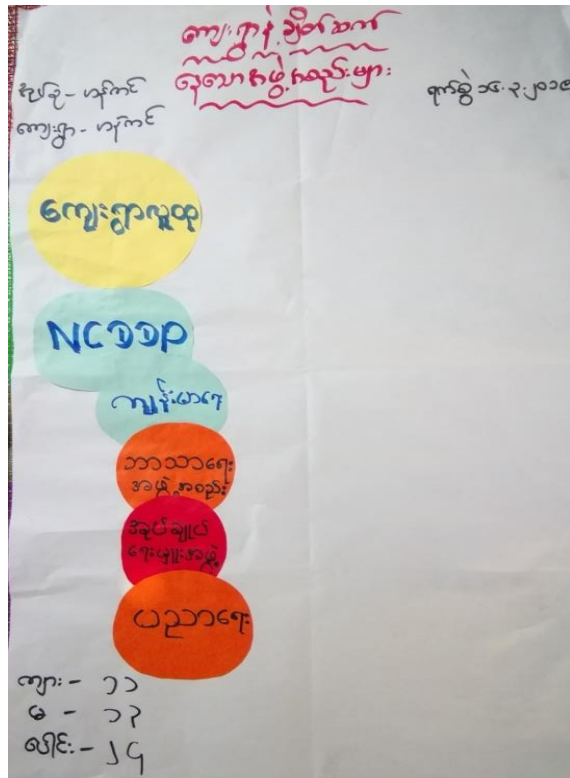 ကျေးရွာနဲ့ ချိတ်ဆက်
နေသောအဖွဲ့အစည်းများ
အုပ်စု - ဟန်ကင်
ကျေးရွာ - ဟန်ကင်
ရက်စွဲ ၁၄.၃.၂၀၁၉
ကျေးရွာလူထု
NCDDP
ကျန်းမာရေး
ဘာသာရေး
အဖွဲ့အစည်း
အုပ်ချုပ်
ရေးမှူးအဖွဲ့
ပညာရေး
ကျား - ၁၁
မ - ၁၃
ပေါင်း - ၂၄